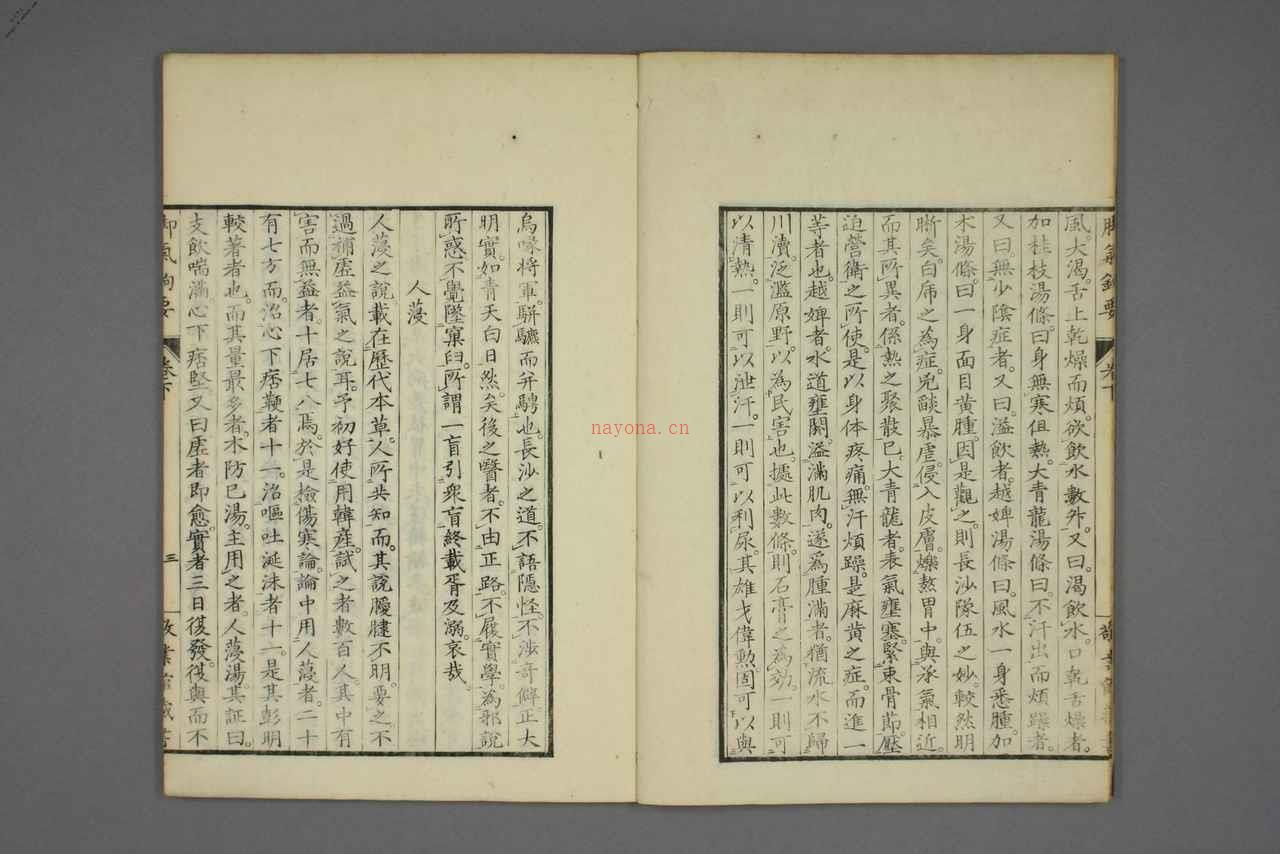 風。大渴。舌上乾燥而煩。欲飲水數升。又曰。渴飲水。口乾舌燥者。
加桂枝湯條。曰。身無寒但熱。大青龍湯條曰。不汗出而煩躁者。
又曰。無少陰症者。又曰。溢飲者。越婢湯條曰。風水一身悉腫。加
木湯條。曰一身面目黄腫。因是觀之。則長沙隊伍之妙較然明
晣矣。白乕之為症。兇燄暴虐。侵入皮膚。爍熬胃中。與承氣相近。
而其所異者。係熱之聚散已。大青龍者。表氣壅塞。緊束骨節。壓
迫營衛之所使。是以身体疼痛。無汗煩躁。是麻黄之症。而進一
等者也。越婢者。水道壅閼。溢滿肌肉。遂爲腫滿者。猶流水不歸
川瀆。泛濫原野。以為民害也。據此數條。則石膏之為効。一則可
以清熱。一則可以泄汗。一則可以利尿。其雄戈偉勲。固可以與
烏喙將軍駢驥而并騁也。長沙之道。不語隱怪。不涉奇僻。正大
明實。如青天白日然矣。後之醫者。不由正路。不履實學。為邪說
所惑。不覺墜窠臼。所謂一盲引衆盲。終載胥及溺。哀哉。
人蓡
人蓡之說載在歷代本草。人所共知。而其說朦朧不明。要之不
過補虛益氣之說耳。予初好使用韓産。試之者數百人。其中有
害而無益者。十居七八焉。於是檢傷寒論。論中用人蓡者。二十
有七方。而治心下痞鞕者十一。治嘔吐涎沫者十一。是其彰明
較著者也。而其量最多者。木防已湯。主用之者。人蓡湯。其証曰。
支飲喘滿。心下痞堅。又曰虛者即愈。實者三日復發。復與而不
脚氣鉤要
卷下
三
nayona.cn